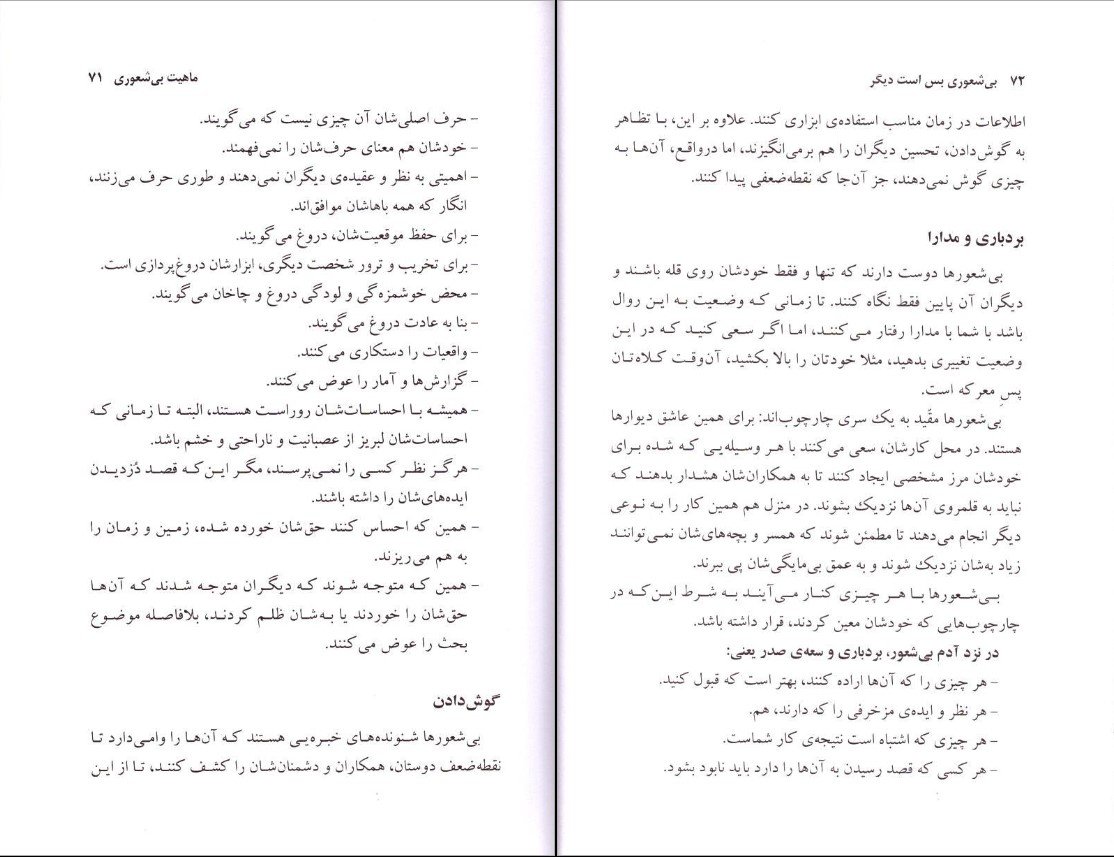 ماهیت بی‌شعوری ۷۱
- حرف اصلی‌شان آن چیزی نیست که می‌گویند.
- خودشان هم معنای حرف‌شان را نمی‌فهمند.
- اهمیتی به نظر و عقیده‌ی دیگران نمی‌دهند و طوری حرف می‌زنند،
انگار که همه باهاشان موافق‌اند.
- برای حفظ موقعیت‌شان، دروغ می‌گویند.
- برای تخریب و ترور شخصت دیگری، ابزارشان دروغ‌پردازی است.
- محض خوشمزه‌گی و لودگی دروغ و چاخان می‌گویند.
- بنا به عادت دروغ می‌گویند.
- واقعیات را دستکاری می‌کنند.
- گزارش‌ها و آمار را عوض می‌کنند.
- همیشه با احساسات‌شان روراست هستند، البته تا زمانی که
احساسات‌شان لبریز از عصبانیت و ناراحتی و خشم باشد.
- هرگز نظر کسی را نمی‌پرسند، مگر این‌که قصد دُزدیدن
ایده‌های‌شان را داشته باشند.
- همین که احساس کنند حق‌شان خورده شده، زمین و زمان را
به هم می‌ریزند.
- همین که متوجه شوند که دیگران متوجه شدند که آن‌ها
حق‌شان را خوردند یا به‌شان ظلم کردند، بلافاصله موضوع
بحث را عوض می‌کنند.
گوش‌دادن
بی‌شعورها شنونده‌های خبره‌یی هستند که آن‌ها را وامی‌دارد تا
نقطه‌ضعف دوستان، همکاران و دشمنان‌شان را کشف کنند، تا از این
۷۲ بی‌شعوری بس است دیگر
اطلاعات در زمان مناسب استفاده‌ی ابزاری کنند. علاوه بر این، با تظاهر
به گوش‌دادن، تحسین دیگران را هم برمی‌انگیزند، اما درواقع، آن‌ها به
چیزی گوش نمی‌دهند، جز آن‌جا که نقطه‌ضعفی پیدا کنند.
بردباری و مدارا
بی‌شعورها دوست دارند که تنها و فقط خودشان روی قله باشند و
دیگران آن پایین فقط نگاه کنند. تا زمانی که وضعیت به این روال
باشد با شما با مدارا رفتار می‌کنند، اما اگر سعی کنید که در این
وضعیت تغییری بدهید، مثلا خودتان را بالا بکشید، آن‌وقت کلاه‌تان
پسِ معرکه است.
بی‌شعورها مقّید به یک سری چارچوب‌اند: برای همین عاشق دیوارها
هستند. در محل کارشان، سعی می‌کنند با هر وسیله‌یی که شده برای
خودشان مرز مشخصی ایجاد کنند تا به همکاران‌شان هشدار بدهند که
نباید به قلمروی آن‌ها نزدیک بشوند. در منزل هم همین کار را به نوعی
دیگر انجام می‌دهند تا مطمئن شوند که همسر و بچه‌های‌شان نمی‌توانند
زیاد به‌شان نزدیک شوند و به عمق بی‌مایگی‌شان پی ببرند.
بی‌شعورها با هر چیزی کنار می‌آیند به شرط این‌که در
چارچوب‌هایی که خودشان معین کردند، قرار داشته باشد.
در نزد آدم بی‌شعور، بردباری و سعه‌ی صدر یعنی:
- هر چیزی را که آن‌ها اراده کنند، بهتر است که قبول کنید.
- هر نظر و ایده‌ی مزخرفی را که دارند، هم.
- هر چیزی که اشتباه است نتیجه‌ی کار شماست.
- هر کسی که قصد رسیدن به آن‌ها را دارد باید نابود بشود.